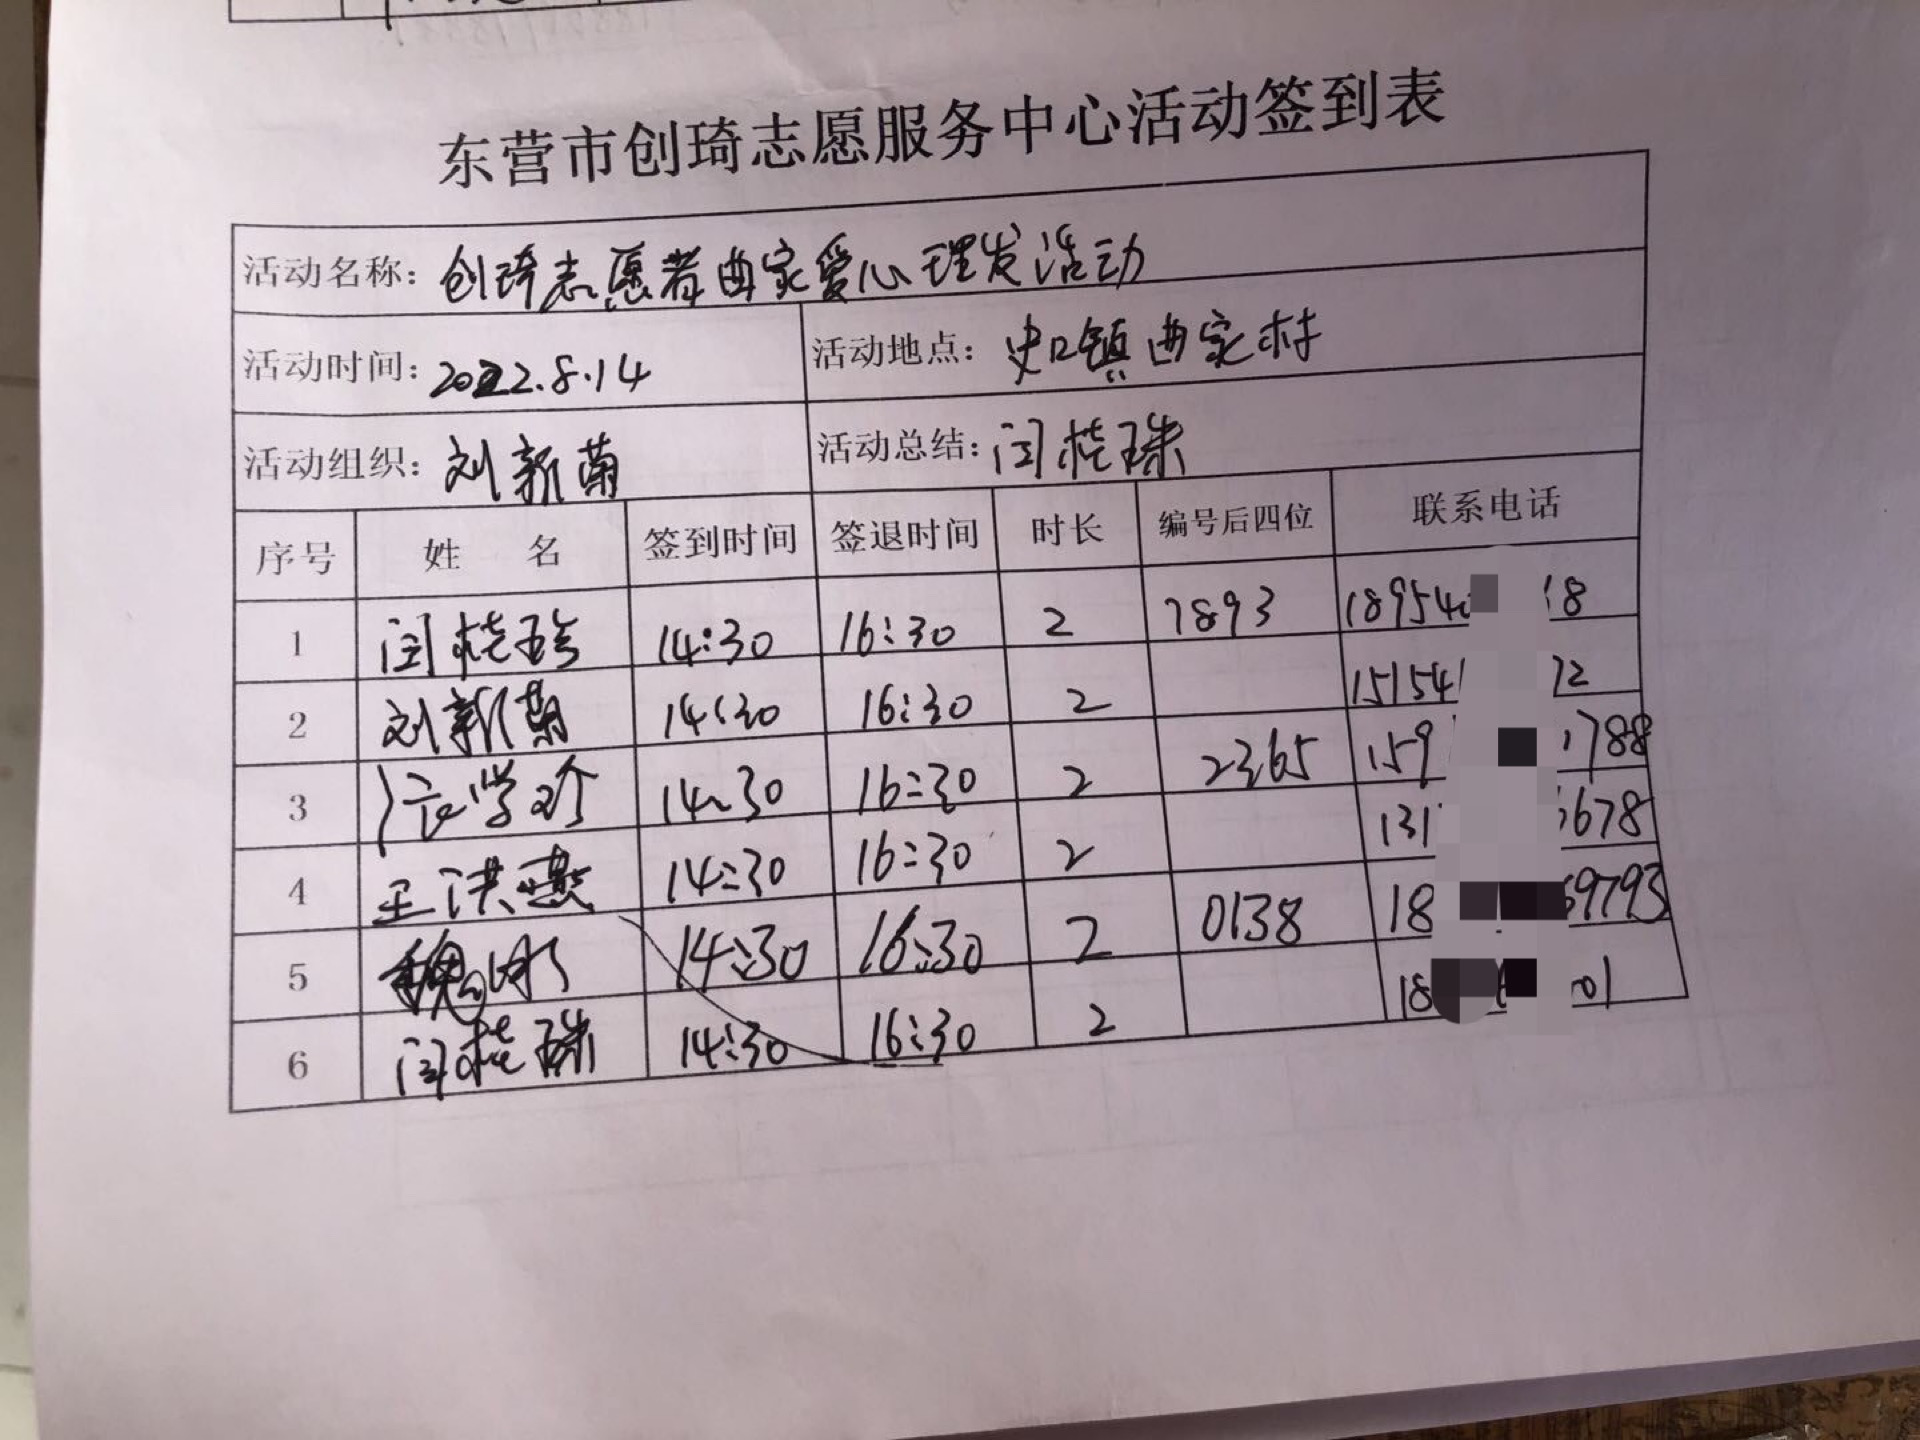 东营市创琦志愿服务中心活动签到表
活动名称：创琦志愿者曲家爱心理发活动
活动时间：2022.8.14 活动地点：史口镇曲家村
活动组织：刘新菊 活动总结：闫桂珠
序号 姓 名 签到时间 签退时间 时长 编号后四位 联系电话
1 闫桂珍 14:30 16:30 2 7893 18954 18
2 刘新菊 14:30 16:30 2 15154 72
3 学珍 14:30 16:30 2 2365 159 1788
4 王洪燕 14:30 16:30 2 131 678
5 魏 14:30 16:30 2 0138 18 69793
6 闫桂珠 14:30 16:30 2 18 01